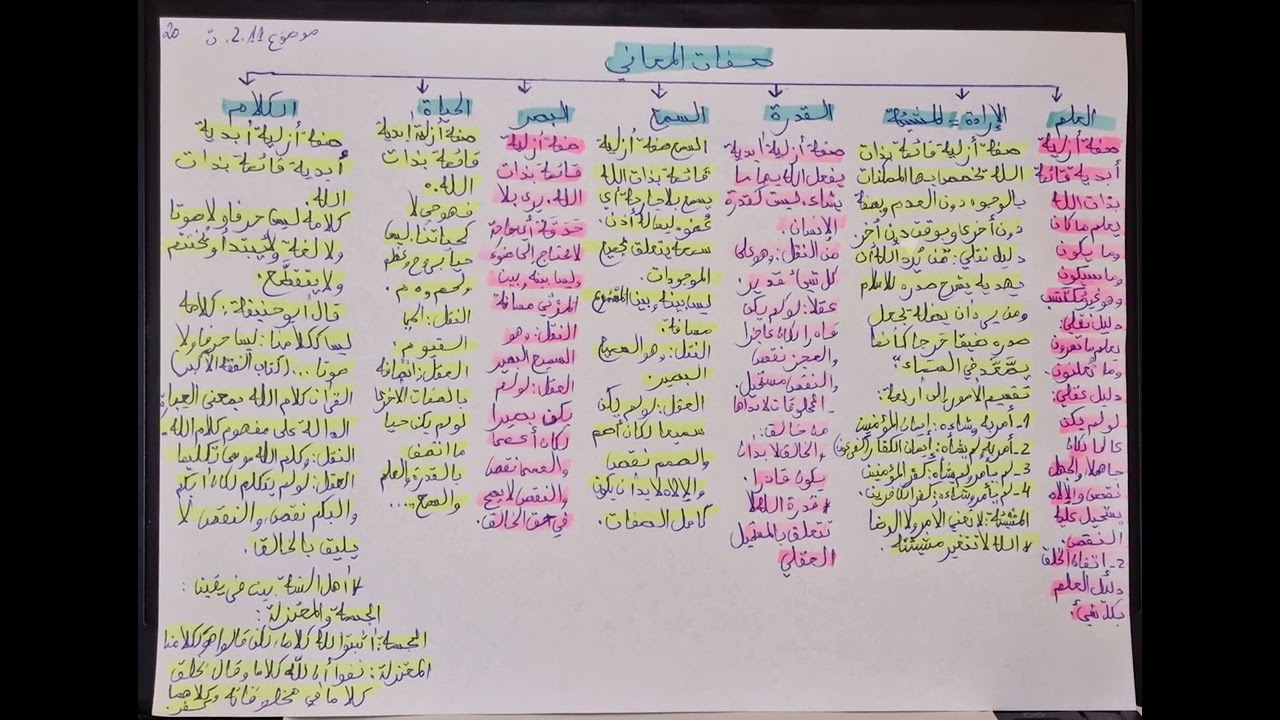 20
موضوع 2.11. ن
صفات المعاني
العلم
صفة أزلية
أبدية قائمة
بذات الله
يعلم ما كان
وما يكون
وما سيكون
وهو غير مكتسب
دليل نقلي:
يعلم ما تسرون
وما تعلنون.
دليل عقلي:
لو لم يكن
عالما لكان
جاهلا والجهل
نقص والإلاه
يستحيل عليه
النقص.
2- اتقان الخلق
دليل العلم
بكل شيء.
الإرادة = المشيئة
صفة أزلية قائمة بذات
الله تخصص بها الممكنات
بالوجود دون العدم وبصفة
دون أخرى وبوقت دون آخر.
دليل نقلي: فمن يرد الله أن
يهديه يشرح صدره للإسلام
ومن يرد أن يضله يجعل
صدره ضيقا حرجا كأنما
يصّعّد في السماء"
تقسيم الأمور إلى أربعة:
1- أمر به وشاءه: إيمان المؤمنين
2- أمر به ولم يشأه: إيمان الكفار (كفرعون)
3- لم يأمر ولم يشأه: كفر المؤمنين
4- لم يأمر وشاءه: كفر الكافرين.
المشيئة: لا تعني الأمر ولا الرضا
* الله لا تتغير مشيئته.
القدرة
صفة أزلية أبدية
يفعل الله بها ما
يشاء، ليست كقدرة
الإنسان.
من النقل: وهو على
كل شيء قدير.
عقلا: لو لم يكن
قادرا لكان عاجزا
والعجز نقص
والنقص مستحيل.
- المخلوقات لابد لها
من خالق.
والخالق لابد أن
يكون قادرا.
* قدرة الله لا
تتعلق بالمستحيل
العقلي
السمع
السمع صفة أزلية
قائمة بذات الله
يسمع بلا جارحة أي
عضو ليس له أذن.
سمعه يتعلق بجميع
الموجودات.
ليس بينه وبين المسموع
مسافة.
النقل: وهو السميع
البصير.
العقل: لو لم يكن
سميعا لكان أصم
والصمم نقص
والإلاه لابد أن يكون
كامل الصفات.
البصر
صفة أزلية
قائمة بذات
الله. يرى بلا
حدقة أي جارحة
لا تحتاج إلى ضوء
وليس بينه وبين
المرئي مسافة
النقل: وهو
السميع البصير
العقل: لو لم
يكن بصيرا
لكان أعمى
والعمى نقص
والنقص لا يصح
في حق الخالق.
الحياة
صفة أزلية أبدية
قائمة بذات
الله.
فهو حي لا
كحياتنا، ليس
حيا بروح وعظم
ولحم ودم.
النقل: الحي
القيوم.
العقل: اتصافه
بالصفات الأخرى
لو لم يكن حيا
ما اتصف
بالقدرة والعلم
والسمع....
الكلام
صفة أزلية أبدية
أبدية قائمة بذات
الله.
كلامه ليس حرفا ولا صوتا
ولا لغة ولا يُبتدأ ويُختتم
ولا يتقطّع.
قال أبو حنيفة: كلامه
ليس ككلامنا: ليس حرفا ولا
صوتا... (كتاب الفقه الأكبر)
القرآن كلام الله بمعنى العبارة
الدالة على مفهوم كلام الله.
النقل: وكلم الله موسى تكليما
العقل: لو لم يتكلم لكان أبكم
والبكم نقص والنقص لا
يليق بالخالق.
* أهل السنة بين فريقين:
المجسمة والمعتزلة:
المجسمة: أثبتوا لله كلاما، لكن قالوا هو ككلامنا
المعتزلة: نفوا أن لله كلاما وقال يخلق
كلاما في مخلوقاته وكلاهما
كفر.